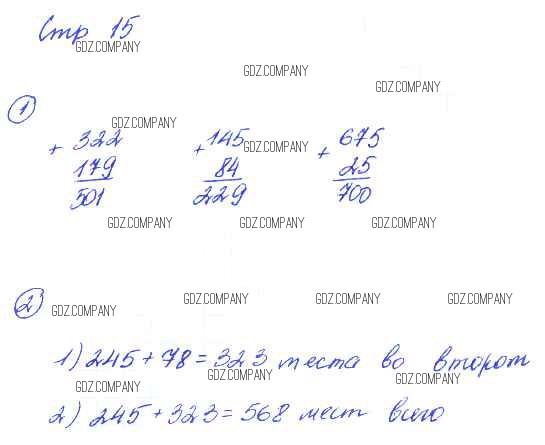 Стр 15
GDZ.COMPANY
GDZ.COMPANY
GDZ.COMPANY
1
GDZ.COMPANY
+ 322 + 145 + 675
GDZ.COMPANY
179 84 25
501 229 700
GDZ.COMPANY GDZ.COMPANY GDZ.COMPANY
2
GDZ.COMPANY GDZ.COMPANY GDZ.COMPANY GDZ.COMPANY
1) 245 + 78 = 323 места во втором
GDZ.COMPANY GDZ.COMPANY GDZ.COMPANY
2) 245 + 323 = 568 мест всего